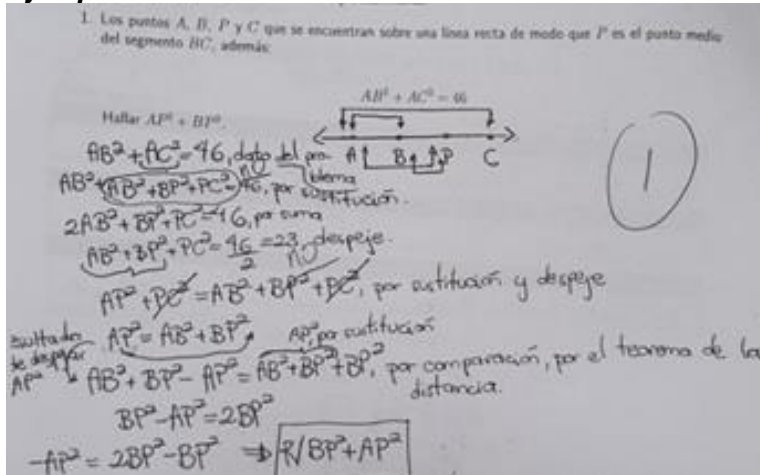 1. Los puntos A, B, P y C que se encuentran sobre una línea recta de modo que P es el punto medio
del segmento BC, además:
AB² + AC² = 46
Hallar AP² + BP².
A B P C
1
AB² + AC² = 46, dato del problema
AB² + AB² + BP² + PC² = 46, por sustitución.
no
2AB² + BP² + PC² = 46, por suma
AB² + BP² + PC² = 46/2 = 23, despeje.
no
AP² + PC² = AB² + BP² + PC², por sustitución y despeje
AP² = AB² + BP², AP² por sustitución
de despejar AP²
AB² + BP² - AP² = AB² + BP² + BP², por comparación, por el teorema de la
distancia.
BP² - AP² = 2BP²
-AP² = 2BP² - BP² ⇒ R/BP² + AP²